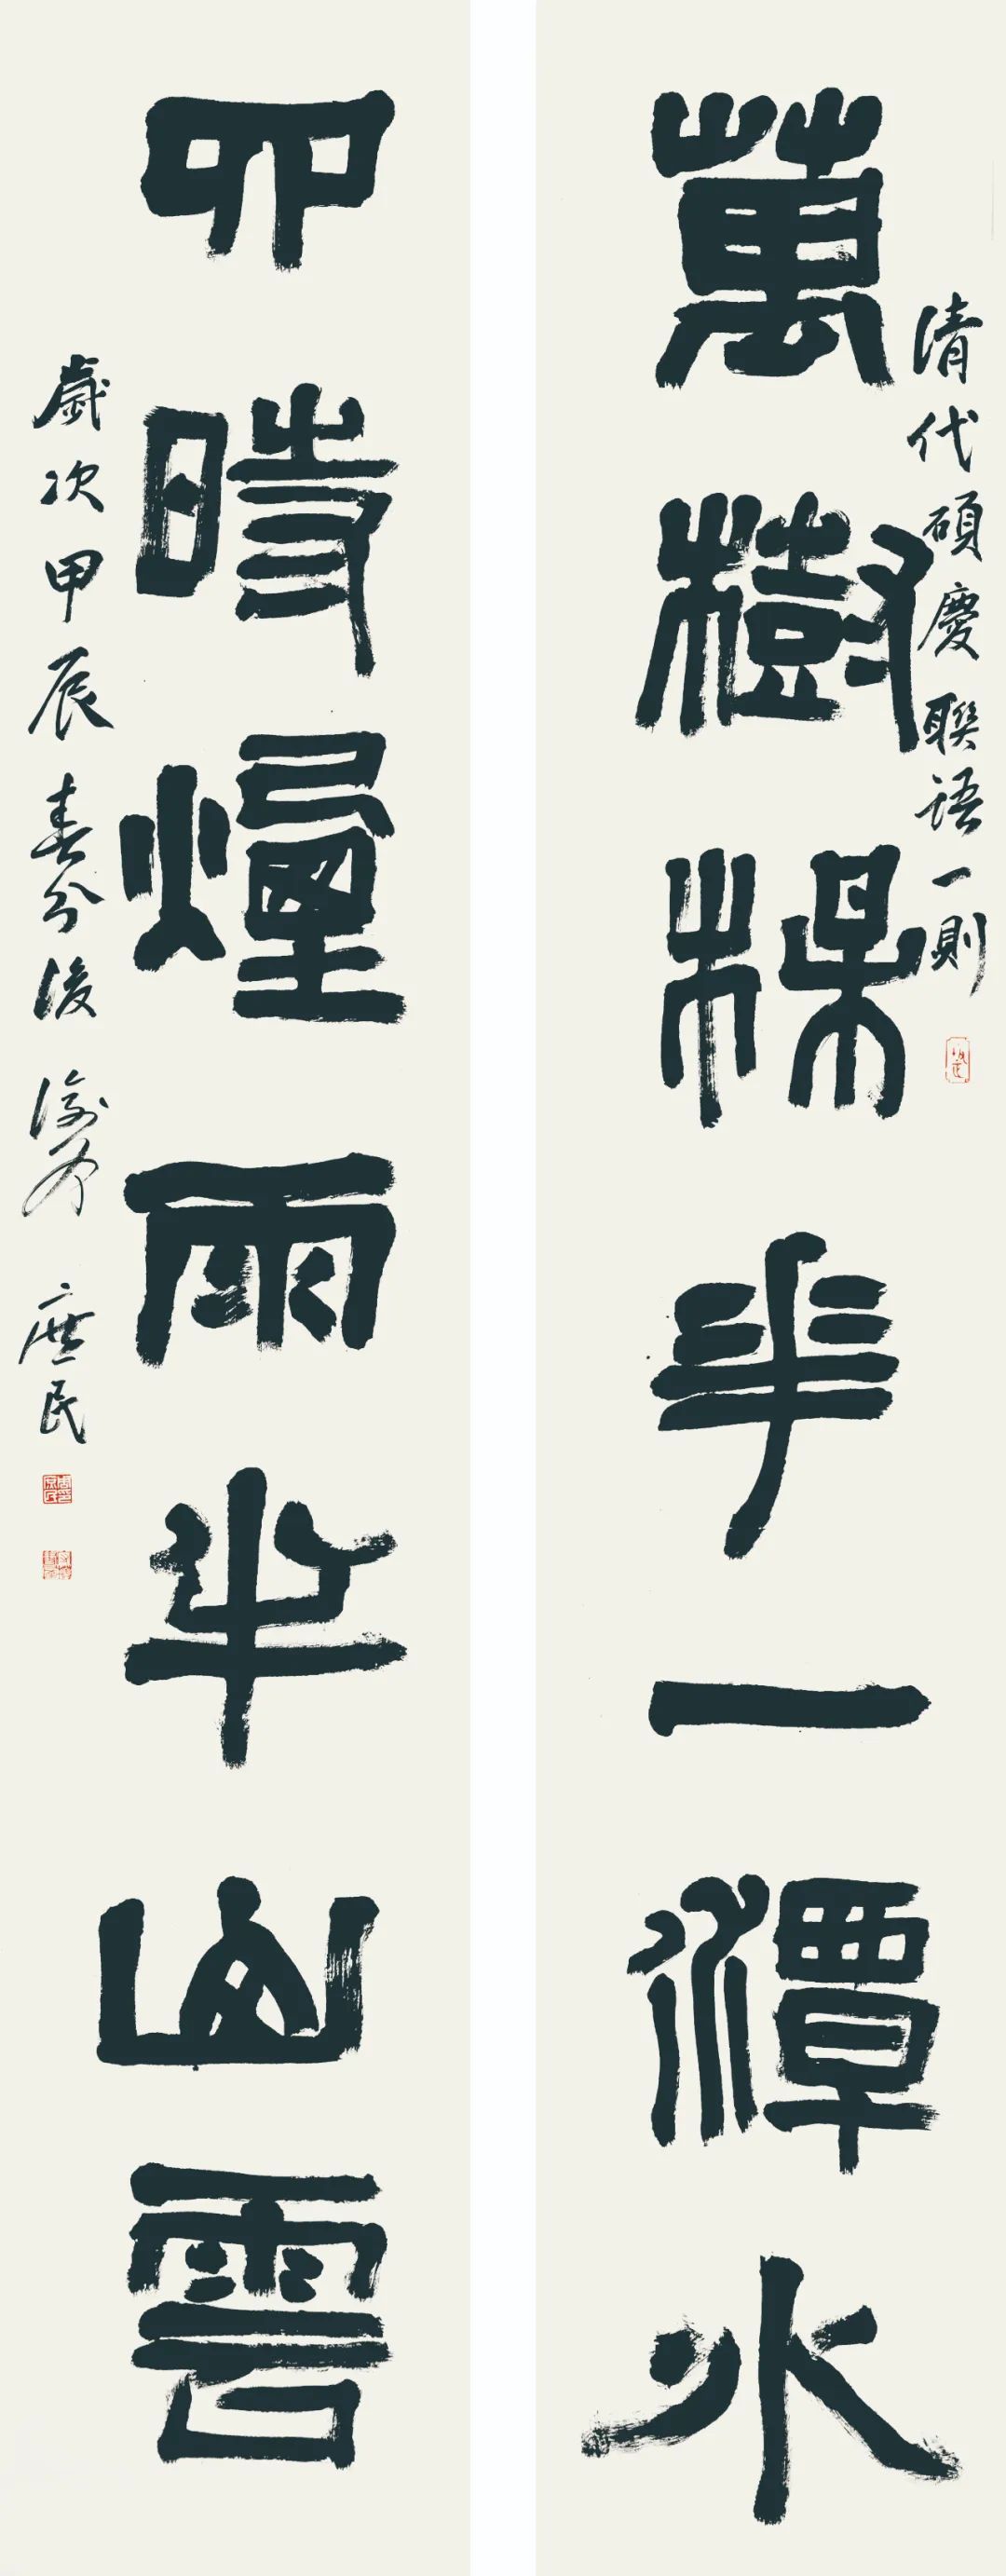 萬樹楳華一潭水
清代碩慶聯語一則
四時煙雨半山雲
歲次甲辰春分後渝州庶民